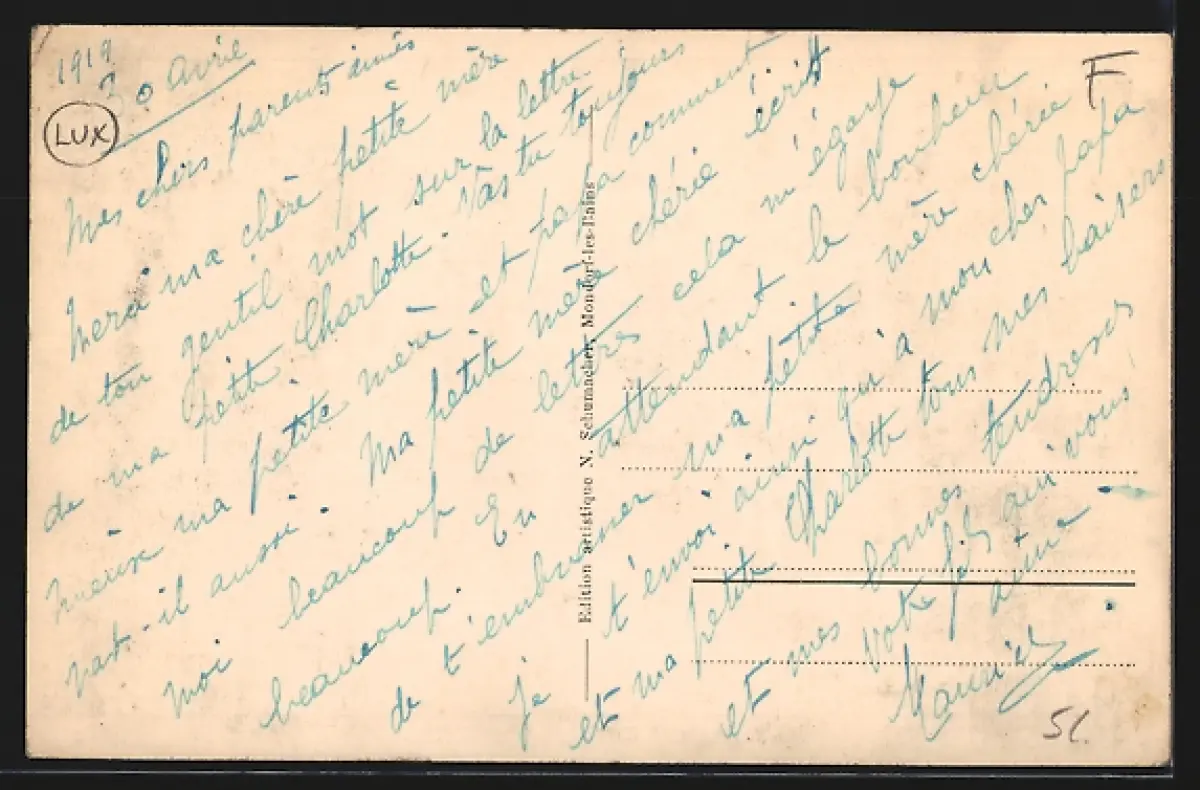 1919
30 avril
LUX
F
Mes chers parents aimés
Merci ma chère petite mère
de ton gentil mot sur la lettre
de ma petite Charlotte. Vas tu toujours
mieux ma petite mère et papa comment
vat-il aussi. Ma petite mère chérie écrit
moi beaucoup de lettres cela m'égaye
beaucoup. En attendant le bonheur
de t'embrasser ma petite mère chérie
je t'envoi ainsi qu'à mon cher papa
et ma petite Charlotte tous mes baisers
et mes bonnes tendresses
votre fils qui vous
aime
Maurice
Edition artistique N. Schumacher, Mondorf-les-Bains